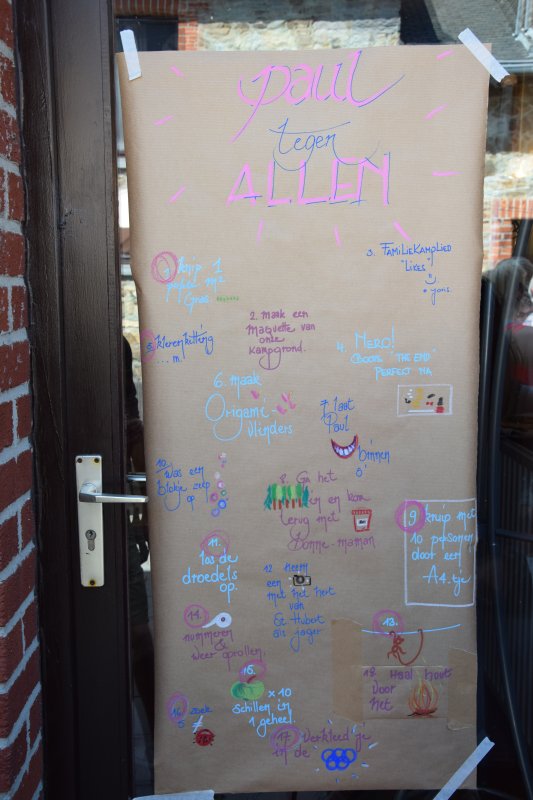 Paul
tegen
ALLEN
1 knip 1
perfect m²
Gras
3. FAMILIEKAMPLIED
"LIKES"
2. maak een
maquette van
onze
kampgrond.
5 klerenketting
... m.
4. MERO!
"THE END"
PERFECT NA
6. maak
Origami
vlinders
7 laat
Paul
binnen
8'
10
Was een
blokje zeep
op
8. Ga het
in en kom
terug met
Bonne-maman
9 kruip met
10 personen
door een
A4.tje
11.
los de
droedels
op.
12. neem
een
met het hert
van
St Hubert
als jager
14.
nummeren
&
weer oprollen.
13.
15.
x 10
schillen in
1 geheel.
18. Haal hout
voor
het
16. zoek
5
17 verkleed je
in de